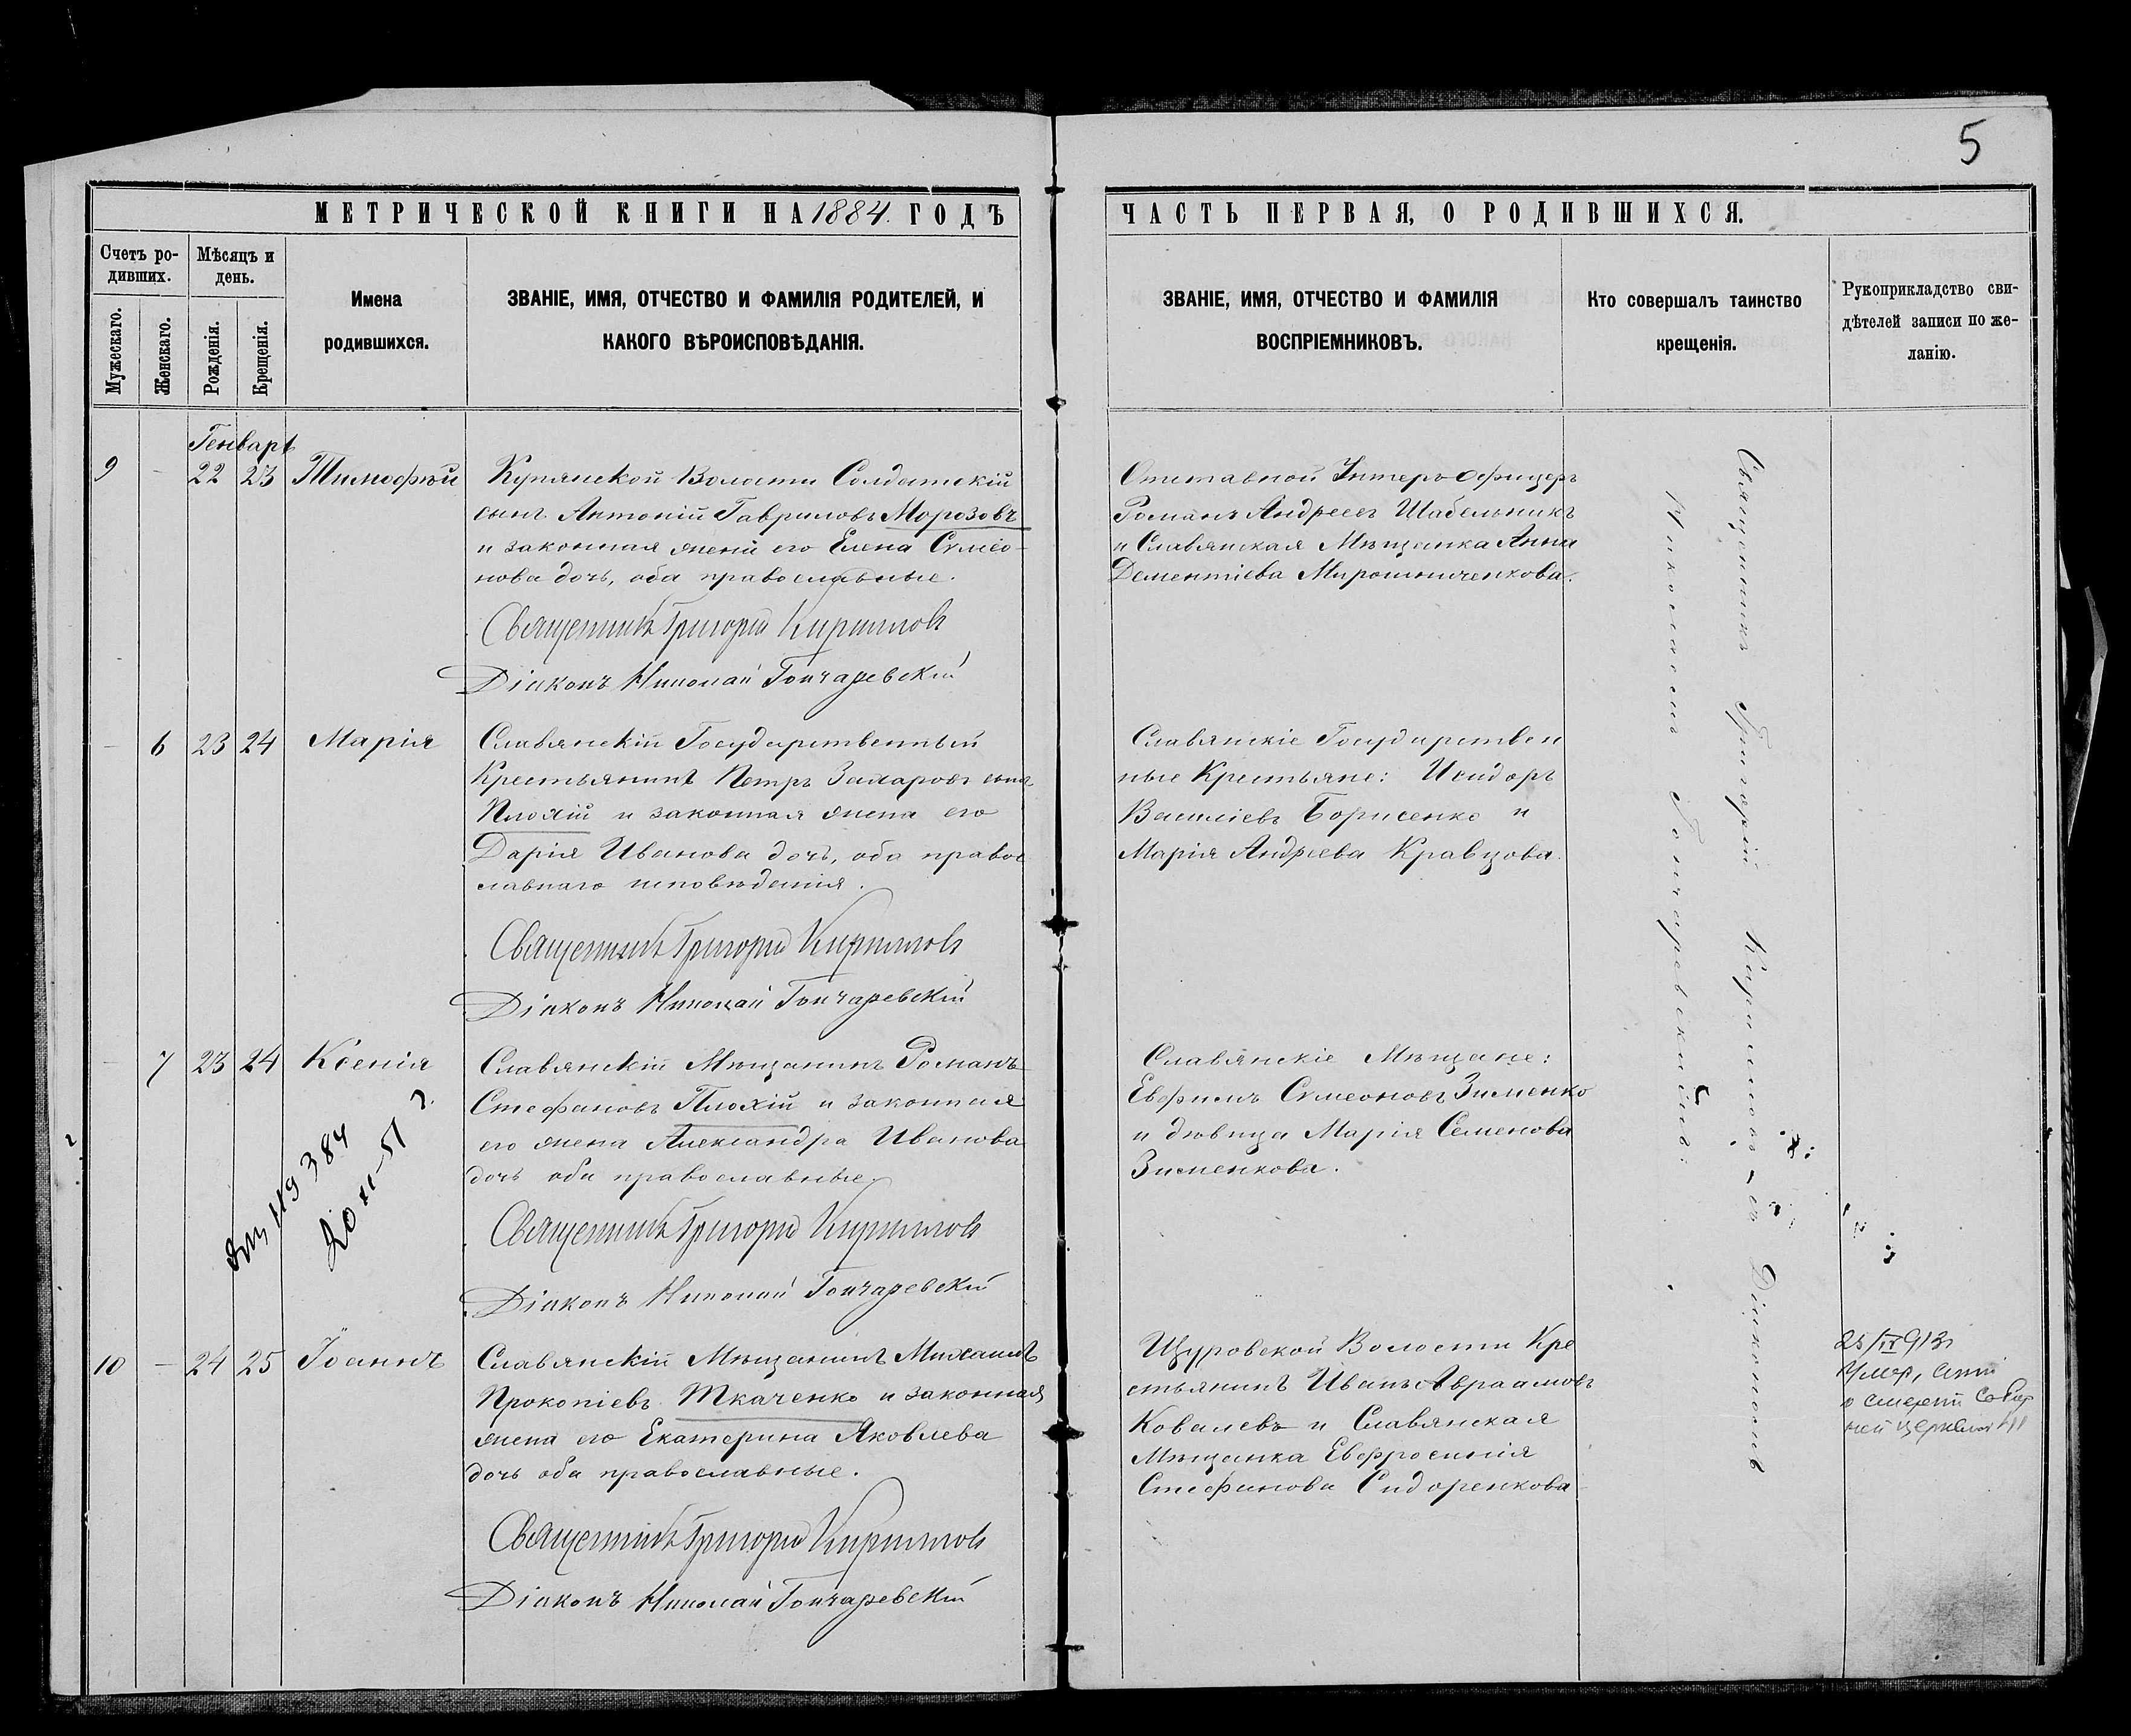 5
МЕТРИЧЕСКОЙ КНИГИ НА 1884. ГОДЪ
ЧАСТЬ ПЕРВАЯ, О РОДИВШИХСЯ.
Счетъ ро-
дивших.
Мужескаго.
Женскаго.
Мѣсяцъ и
день.
Рожденія.
Крещенія.
Имена
родившихся.
ЗВАНІЕ, ИМЯ, ОТЧЕСТВО И ФАМИЛІЯ РОДИТЕЛЕЙ, И
КАКОГО ВѢРОИСПОВѢДАНІЯ.
ЗВАНІЕ, ИМЯ, ОТЧЕСТВО И ФАМИЛІЯ
ВОСПРІЕМНИКОВЪ.
Кто совершалъ таинство
крещенія.
Рукоприкладство сви-
дѣтелей записи по же-
ланію.
Генварь
9 - 22 23 Тимофѣй
Купянской Волости Солдатскій
сынъ Антоній Гавриловъ Морозовъ
и законная жена его Елена Симео-
нова дочь, оба православные.
Священникъ Григорій Кирилловъ
Діаконъ Николай Гончаревскій
Отставной Унтеръ-Офицеръ
Романъ Андреевъ Шабельникъ
и Славянская Мѣщанка Анна
Дементіева Мирошниченкова.
- 6 23 24 Марія
Славянскій Государственный
Крестьянинъ Петръ Захаровъ сынъ
Плохій и законная жена его
Дарія Иванова дочь, оба правос
лавнаго исповѣданія.
Священникъ Григорій Кирилловъ
Діаконъ Николай Гончаревскій
Славянскіе Государствен
ные Крестьяне: Исидоръ
Василіевъ Борисенко и
Марія Андреева Кравцова.
- 7 23 24 Ксенія
Славянскій Мѣщанинъ Романъ
Стефановъ Плохій и законная
его жена Александра Иванова
дочь оба православные.
Священникъ Григорій Кирилловъ
Діаконъ Николай Гончаревскій
119384
20 XI-51 г.
Славянскіе Мѣщане:
Евфимъ Симеоновъ Зименко
и дѣвица Марія Семенова
Зименкова.
10 - 24 25 Іоаннъ
Славянскій Мѣщанинъ Михаилъ
Прокопіевъ Ткаченко и законная
жена его Екатерина Яковлева
дочь оба православные.
Священникъ Григорій Кирилловъ
Діаконъ Николай Гончаревскій
Щуровской Волости Кре
стьянинъ Иванъ Авраамовъ
Ковалевъ и Славянская
Мѣщанка Евфросинія
Стефанова Сидоренкова
Священникъ Григорій Кирилловъ, съ Діакономъ
Николаемъ Гончаревскимъ.
913
о смерти Собор
ной церкви